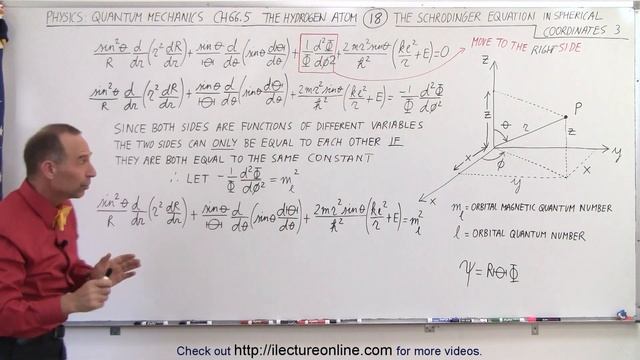 PHYSICS: QUANTUM MECHANICS CH66.5 THE HYDROGEN ATOM (18) THE SCHRODINGER EQUATION IN SPHERICAL COORDINATES 3
sin²θ/R d/dr (r² dR/dr) + sinθ/Θ d/dθ (sinθ dΘ/dθ) + 1/Φ d²Φ/dφ² + 2mr²sinθ/ħ² (ke²/r + E) = 0
MOVE TO THE RIGHT SIDE
sin²θ/R d/dr (r² dR/dr) + sinθ/Θ d/dθ (sinθ dΘ/dθ) + 2mr²sinθ/ħ² (ke²/r + E) = -1/Φ d²Φ/dφ²
SINCE BOTH SIDES ARE FUNCTIONS OF DIFFERENT VARIABLES
THE TWO SIDES CAN ONLY BE EQUAL TO EACH OTHER IF
THEY ARE BOTH EQUAL TO THE SAME CONSTANT
∴ LET -1/Φ d²Φ/dφ² = m_l²
sin²θ/R d/dr (r² dR/dr) + sinθ/Θ d/dθ (sinθ dΘ/dθ) + 2mr²sinθ/ħ² (ke²/r + E) = m_l²
z
P
θ
r
z
z
y
x
φ
y
x
x
m_l = ORBITAL MAGNETIC QUANTUM NUMBER
l = ORBITAL QUANTUM NUMBER
ψ = RΘΦ
Check out http://ilectureonline.com for more videos.